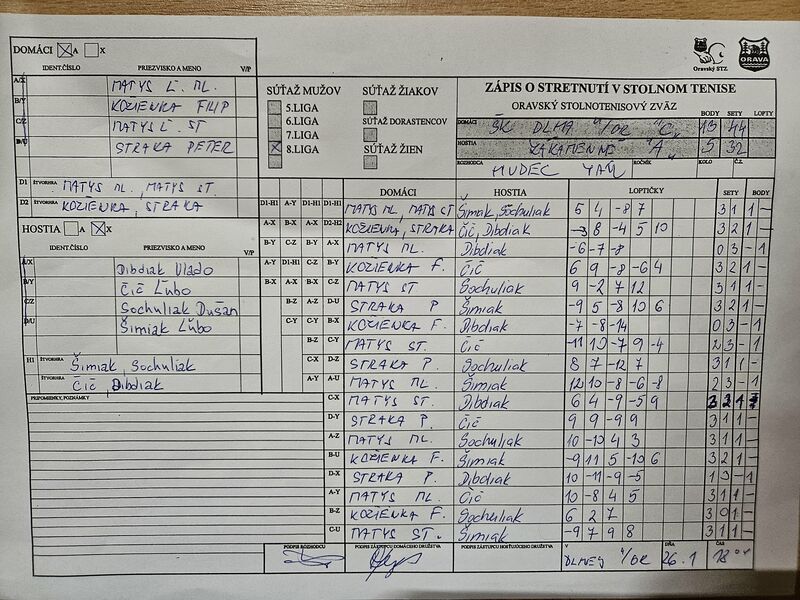 DOMÁCI ☒ A ☐ X
IDENT.ČÍSLO PRIEZVISKO A MENO V/P
A/X MATYS Ľ. ML.
B/Y KOZIENKA FILIP
C/Z MATYS Ľ. ST
D/U STRAKA PETER
D1 ŠTVORHRA MATYS ML., MATYS ST.
D2 ŠTVORHRA KOZIENKA, STRAKA
HOSTIA ☐ A ☒ X
IDENT.ČÍSLO PRIEZVISKO A MENO V/P
A/X Dibdiak Vlado
B/Y Čič Ľubo
C/Z Sochuliak Dušan
D/U Šimiak Ľubo
H1 ŠTVORHRA Šimiak, Sochuliak
ŠTVORHRA Čič, Dibdiak
PRIPOMIENKY, POZNÁMKY
SÚŤAŽ MUŽOV
5.LIGA
6.LIGA
7.LIGA
☒ 8.LIGA
SÚŤAŽ ŽIAKOV
SÚŤAŽ DORASTENCOV
SÚŤAŽ ŽIEN
Oravský STZ
ORAVA
ZÁPIS O STRETNUTÍ V STOLNOM TENISE
ORAVSKÝ STOLNOTENISOVÝ ZVÄZ
BODY SETY LOPTY
DOMÁCI ŠK DLHÁ N/OR "C" 13 44
HOSTIA ZÁKAMENNÉ "A" 5 32
ROZHODCA HUDEC JÁN ROČNÍK KOLO Č.Z.
DOMÁCI HOSTIA LOPTIČKY SETY BODY
D1-H1 A-Y D1-H1 D1-H1 MATYS ML, MATYS ST Šimiak, Sochuliak 5 4 -8 7 3 1 1 -
A-X B-X A-X D2-H2 KOZIENKA, STRAKA Čič, Dibdiak -3 8 -4 5 10 3 2 1 -
B-Y C-Z B-Y A-X MATYS ML. Dibdiak -6 -7 -8 0 3 - 1
A-Y D1-H1 C-Z B-Y KOZIENKA F. Čič 6 9 -8 -6 4 3 2 1 -
B-X A-X B-X C-Z MATYS ST Sochuliak 9 -2 7 12 3 1 1 -
B-Z A-Z D-U STRAKA P Šimiak -9 5 -8 10 6 3 2 1 -
C-Y C-Y B-X KOZIENKA F. Dibdiak -7 -8 -14 0 3 - 1
B-Z C-Y MATYS ST. Čič -11 10 -7 9 -4 2 3 - 1
C-X D-Z STRAKA P. Sochuliak 8 7 -12 7 3 1 1 -
A-Y A-U MATYS ML. Šimiak 12 10 -8 -6 -8 2 3 - 1
C-X MATYS ST. Dibdiak 6 4 -9 -5 9 3 2 1
D-Y STRAKA P. Čič 9 9 -9 9 3 1 1 -
A-Z MATYS ML. Sochuliak 10 -10 4 3 3 1 1 -
B-U KOZIENKA F. Šimiak -9 11 5 -10 6 3 2 1 -
D-X STRAKA P. Dibdiak 10 -11 -9 -5 1 3 - 1
A-Y MATYS ML Čič 10 -8 4 5 3 1 1 -
B-Z KOZIENKA F. Sochuliak 6 2 7 3 0 1 -
C-U MATYS ST. Šimiak -9 7 9 8 3 1 1 -
PODPIS ROZHODCU PODPIS ZÁSTUPCU DOMÁCEHO DRUŽSTVA PODPIS ZÁSTUPCU HOSŤUJÚCEHO DRUŽSTVA V DLHEJ N/OR DŇA 26.1 ČAS 18°°